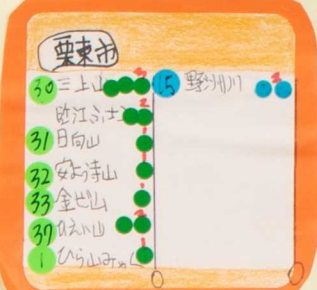 栗東市
30 三上山 3
近江ふじ 2
31 日向山 1
32 安よう寺山 1
33 金ぜ山 1
37 ひえい山 2
1 ひら山みゃく 1
15 野洲川 2